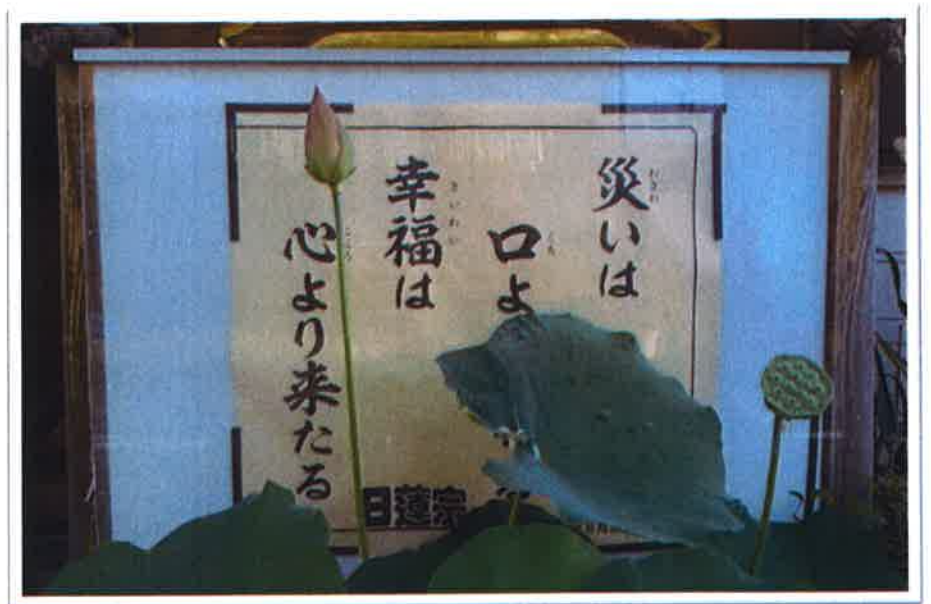 災いは
口よ
幸福は
心より来たる
日蓮宗